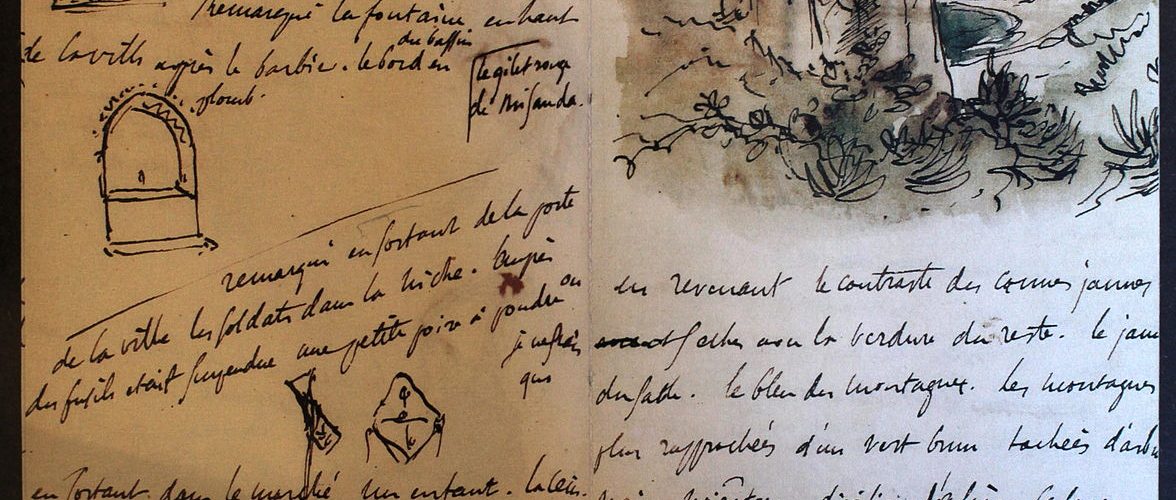 remarqué la fontaine en haut
de la ville après le barbier. le bord en
du bassin
plomb.
le gilet rouge
de
remarqué en sortant de la porte
de la ville les soldats dans la niche. Auprès
des fusils etait suspendue une petite poire à poudre ou
je ne sais
quoi
en sortant dans le marché un enfant.
en revenant le contraste des cornes jaunes
seches avec la verdure du reste. le jaune
du sable. le bleu des montagnes. Les montagnes
plus rapprochées d'un vert brun tachées